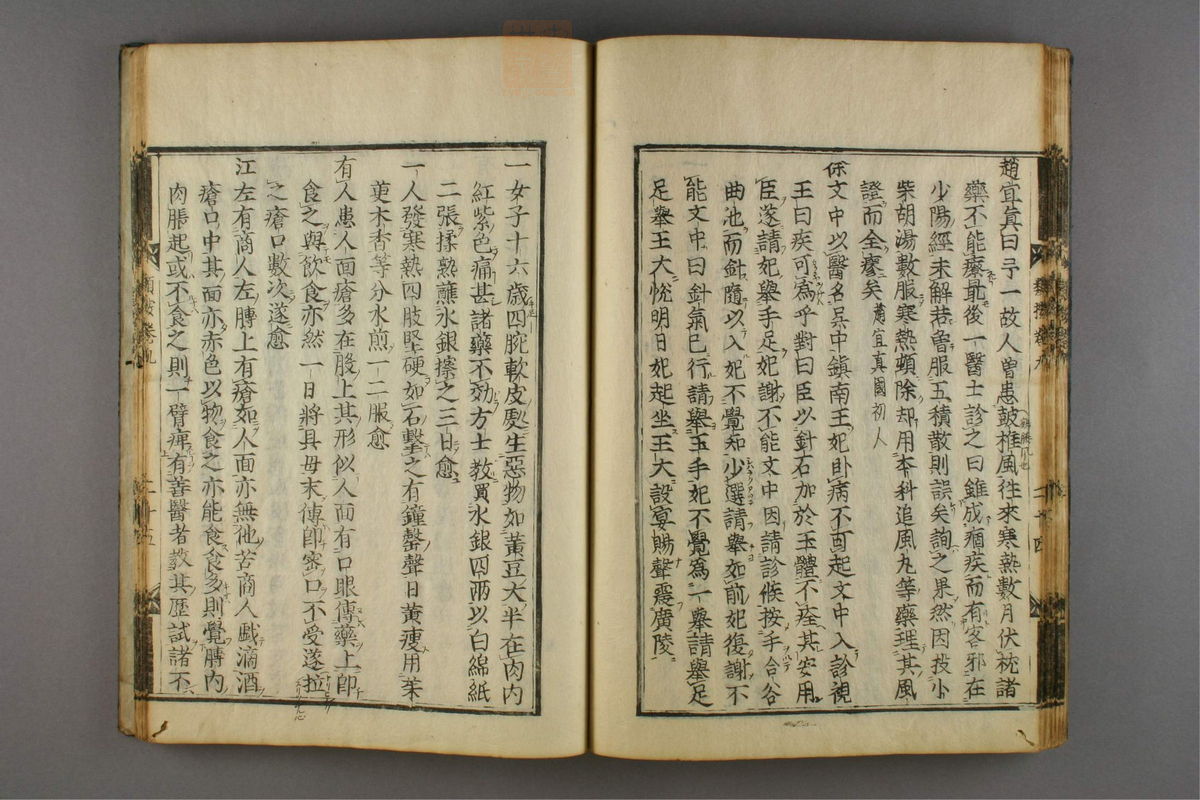 趙宜真曰予一故人曾患皷椎風徃來寒熱數月伏枕諸
藥不能療最後一醫士診之曰雖成痼疾而有客邪在
少陽經未解若曾服五積散則誤矣詢之果然因投小
柴胡湯數服寒熱頓除却用本科追風丸等藥理其風
證而全瘳矣 趙宜真國初人
保文中以醫名吳中鎮南王妃卧病不可起文中入診視
王曰疾可爲乎對曰臣以針石加於玉體不痊其安用
臣遂請妃舉手足妃謝不能文中因請診候按手合谷
曲池而針隨以入妃不覺知少選請舉如前妃復謝不
能文中曰針氣已行請舉玉手妃不覺爲一舉請舉足
足舉王大悅明日妃起坐王大設宴賜聲震廣陵
類按卷九
二十四
一女子十六歲四腕軟皮處生惡物如黃豆大半在肉內
紅紫色痛甚諸藥不効方士教買水銀四兩以白綿紙
二張揉熟蘸水銀擦之三日愈
一人發寒熱四肢堅硬如石擊之有鐘罄聲日黃瘦用茱
萸木香等分水煎一二服愈
有人患人面瘡多在股上其形似人面有口眼傳藥上卽
食之與飲食亦然一日將具毋末傳卽窑口不受遂拉
之瘡口數次遂愈
江左有商人左膊上有瘡如人面亦無他苦商人戲滴酒
瘡口中其面亦赤色以物食之亦能食食多則覺膊內
肉脹起或不食之則一臂痺有善醫者教其歷試諸不
類按卷九
二十五